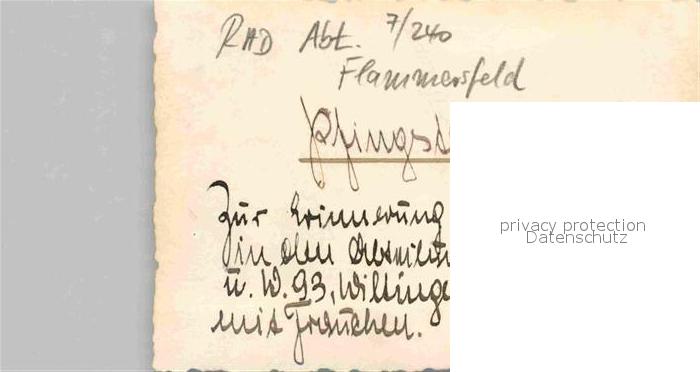 RAD Abt. 7/240
Flammersfeld
Pfingst
Zur Erinnerung
in den Abteilun
u. W. 93, Willinge
mit Frauchen.
privacy protection
Datenschutz